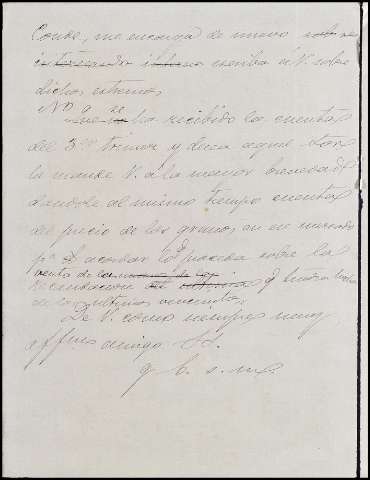 Conde, me encarga de nuevo
escriba á V. sobre
dichos extremos.
No ha recibido las cuentas
del 3.er trimre y desea
la mande V. a la mayor brevedad
dandole al mismo tiempo cuenta
del precio de los granos en ese mercado
pa acordar lo q proceda sobre la
venta de
recaudacion q
de los ultimos vencimtos
De V. como siempre muy
affmo amigo S.S.
q. b. s. m.